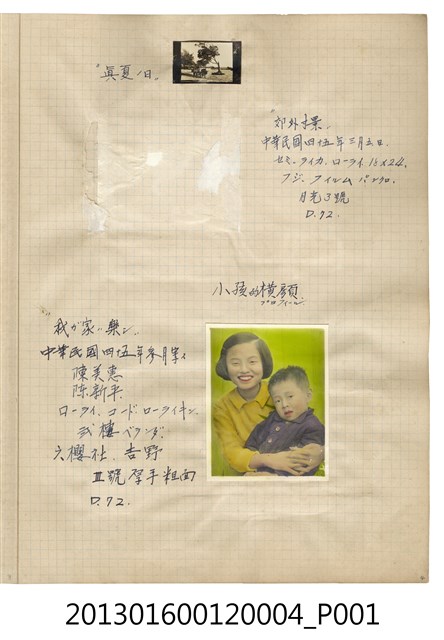 "真夏ノ日"
"郊外寸景"
中華民國四五年三月五日.
セミ.ライカ.ローライ.16×24.
フジ.フイルム パンクロ.
月光3號
D.72.
小孩的橫顏
プロフィール
"我が家ハ樂シ.
中華民國四五年參月寫ス
陳美惠
陈新平
ローライ.コードローライキン.
弍樓ベランダ.
六櫻社.吉野
Ⅲ號厚手粗面
D.72.
201301600120004_P001